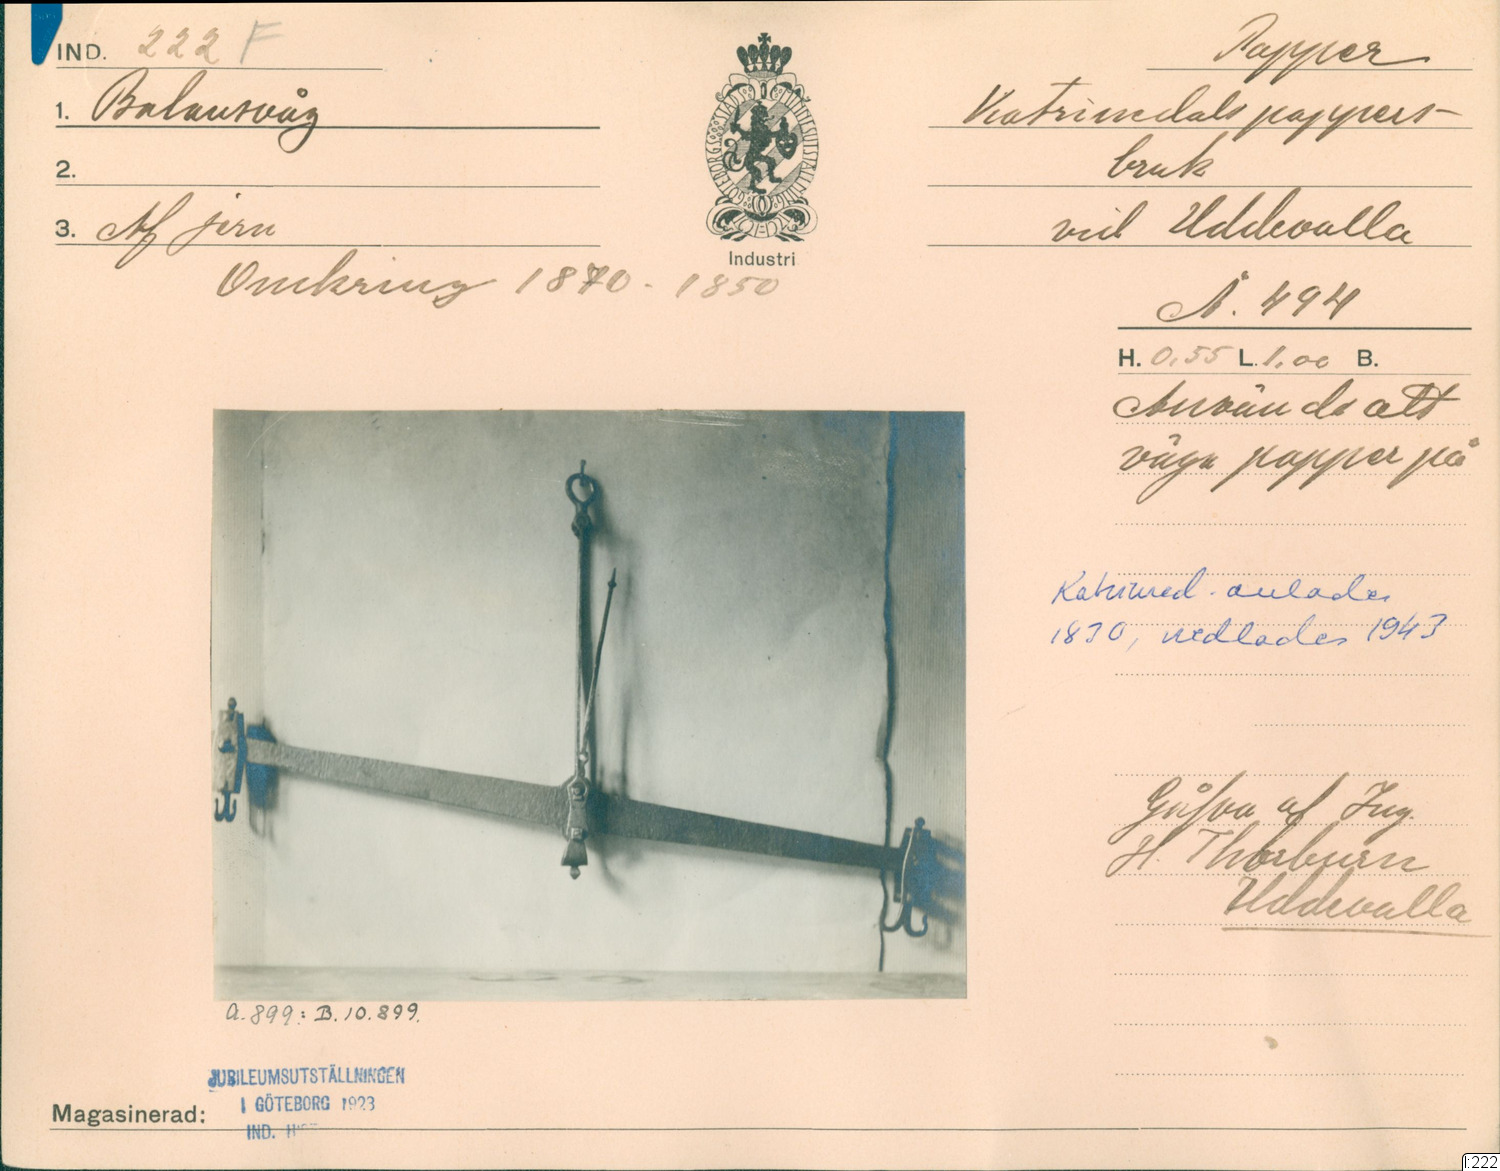 IND. 222 F
1. Balansvåg
2.
3. Af jern
Omkring 1870 - 1850
GÖTEBORGS STADS MINNESUTSTÄLLNING
Industri
Papper
Katrinedals pappers-
bruk
vid Uddevalla
Å. 494
H. 0,55 L. 1,00 B.
Används att
väga papper på
Katrined. anlades
1830, nedlades 1943
Gåfva af Ing.
H. Thorburn
Uddevalla
A.899: B.10.899.
JUBILEUMSUTSTÄLLNINGEN
I GÖTEBORG 1923
IND.
Magasinerad:
I:222